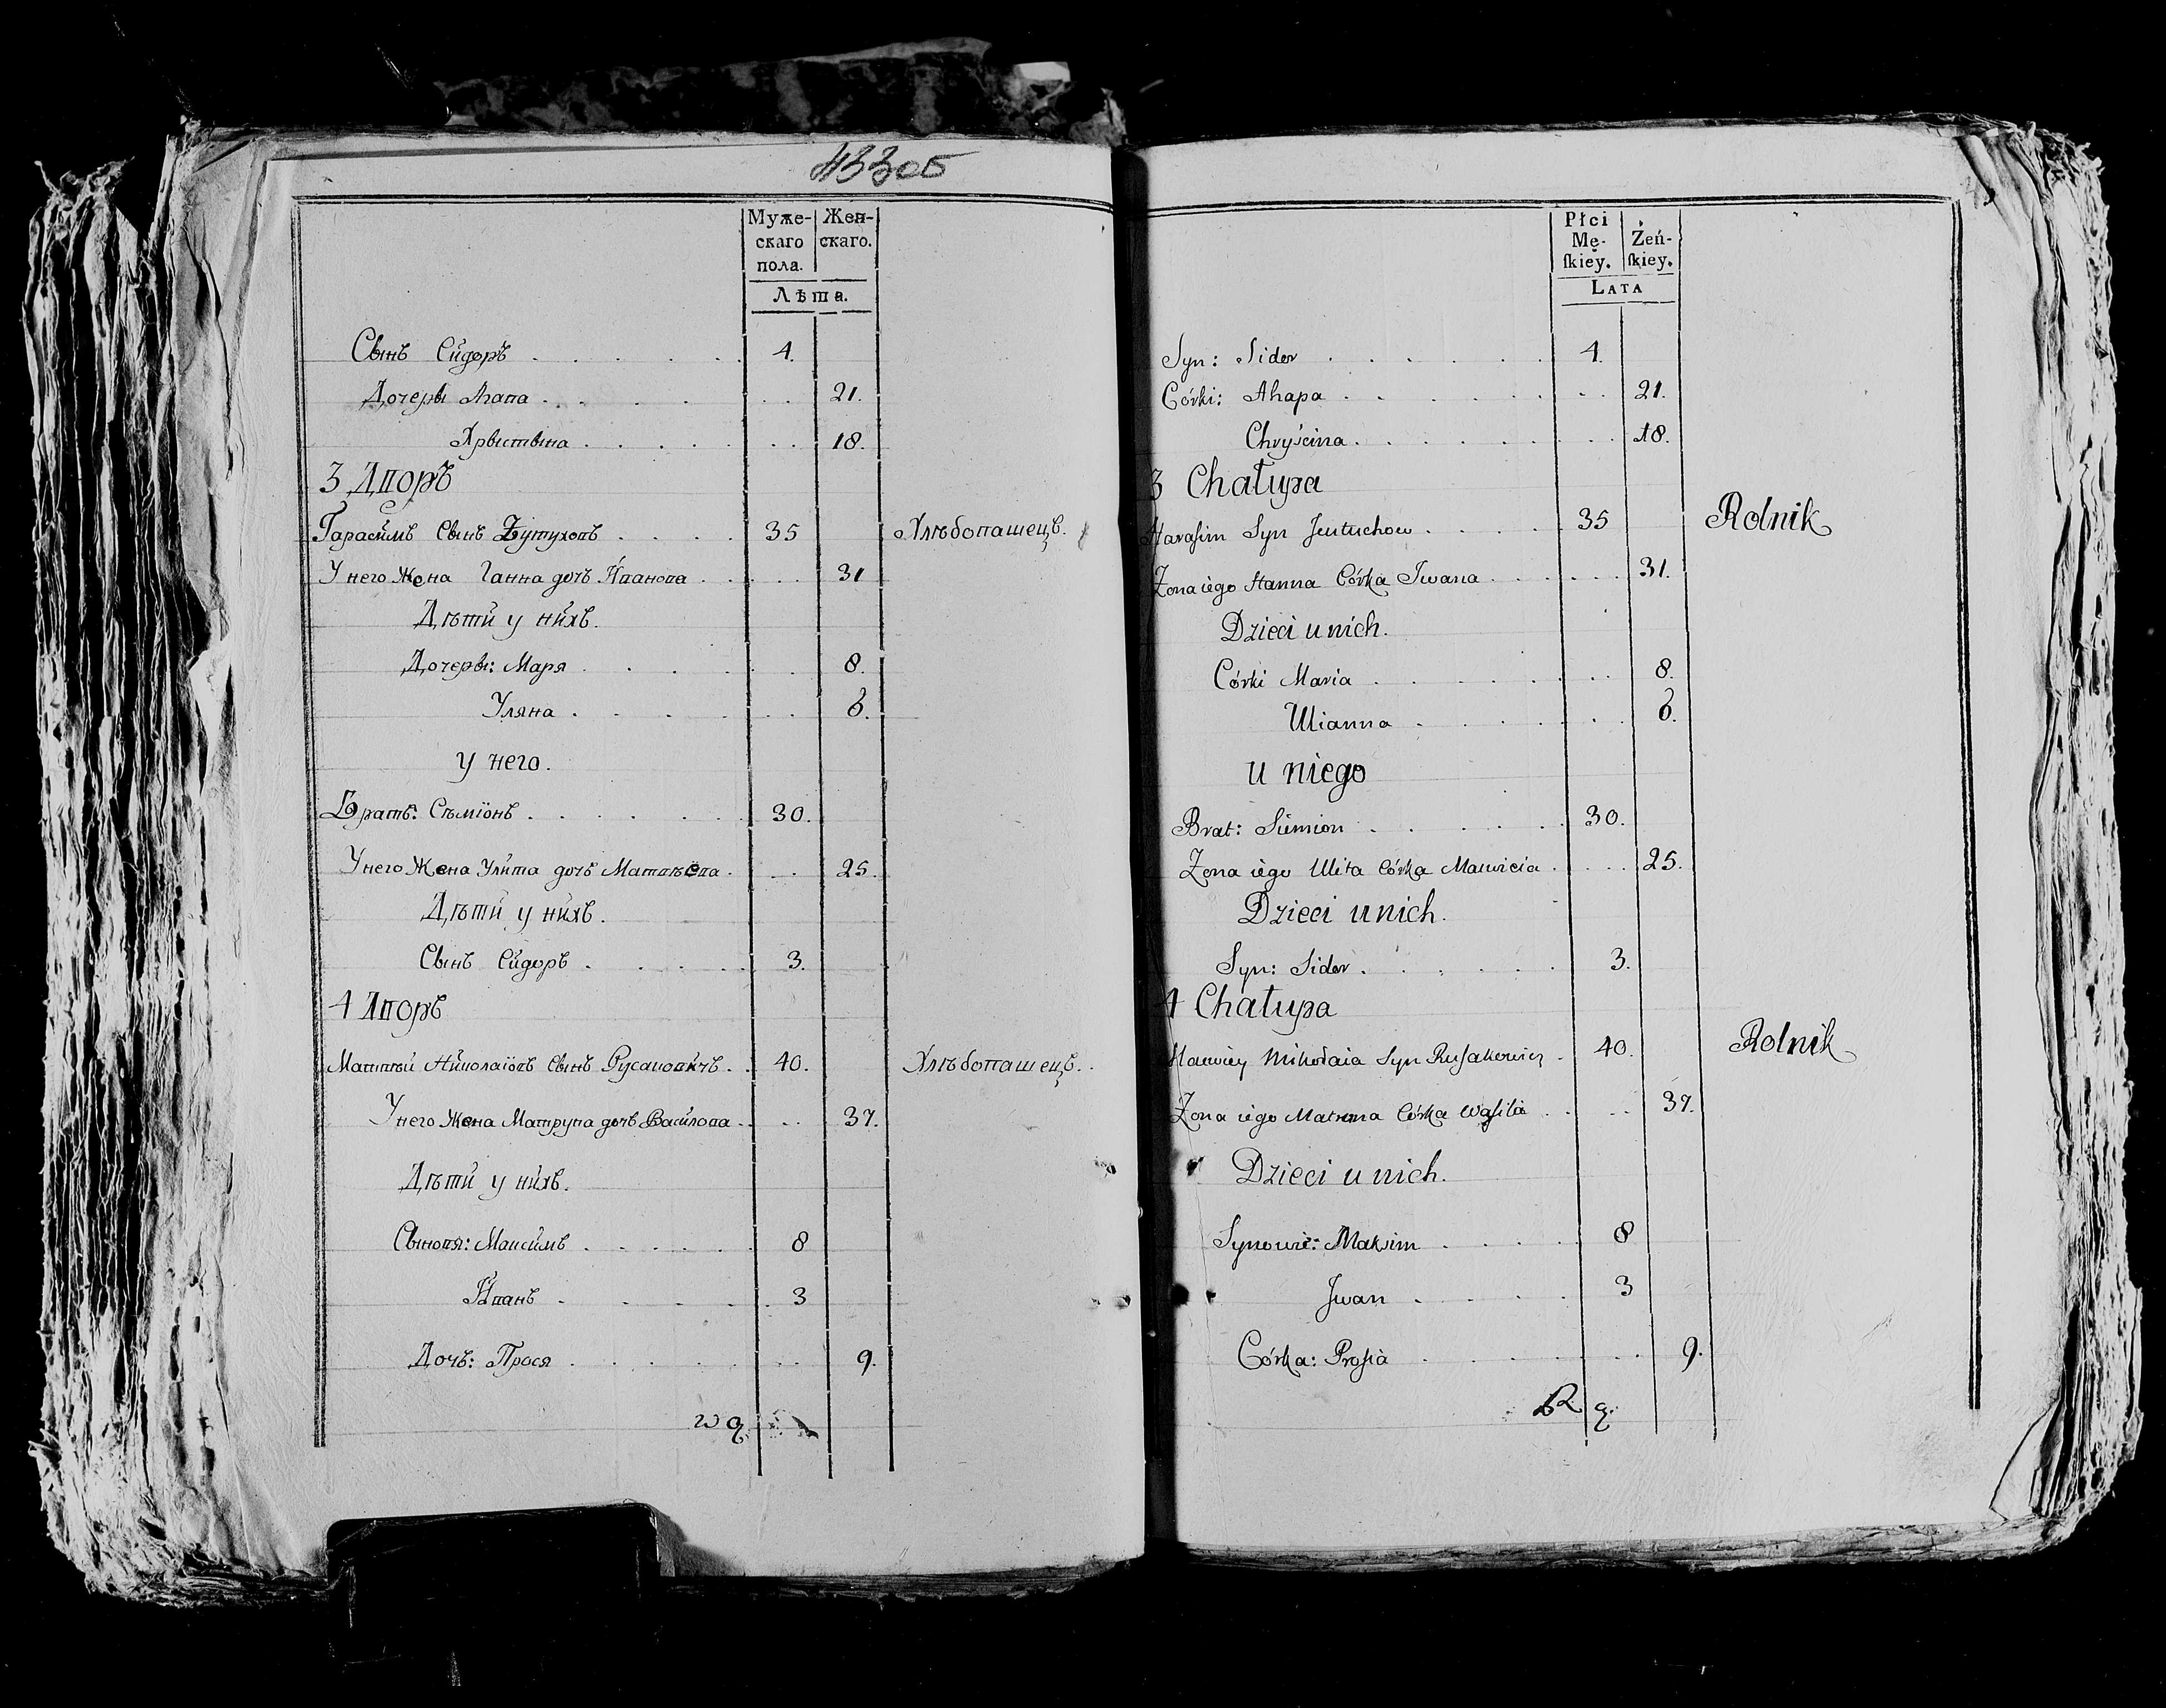 433об
Муже- Жен-
скаго скаго.
пола.
Лѣта.
Сынъ Сидоръ . . . . . . 4.
Дочеры Агапа . . . . . . . 21.
Хрыстына . . . . . . 18.
3 Дворъ
Гарасимъ Сынъ . . . . 35 Хлѣбопашецъ.
У него Жена Ганна дочъ Иванова . . . . 31
Дѣти у нихъ.
Дочеры: Маря . . . . . 8.
Уляна . . . . . 6.
у него.
Братъ: Сѣміонъ . . . . . . 30.
У него Жена Улита дочъ Матвѣева . . . 25.
Дѣти у нихъ.
Сынъ Сидоръ . . . . 3.
4 Дворъ
Матвѣй Николаіовъ Сынъ Русаковичъ . . 40. Хлѣбопашецъ.
У него Жена Матруна дочъ Васылова . . . 37.
Дѣти у нихъ.
Сыновя: Максимъ . . . . . . 8
Иванъ . . . . . 3
Дочъ: Прося . . . . . . . 9.
Płci
Mę- Żeń-
ſkiey. ſkiey.
LATA
Syn: Sidor . . . . . . 4.
Córki: Ahapa . . . . . . . . 21.
Chryścina . . . . . . . . 18.
3 Chałupa
Harasim Syn Jewtuchow . . . . 35 Rolnik
Żona iego Hanna Córka Iwana . . . . . . 31.
Dzieci u nich.
Córki Maria . . . . . . . . 8.
Ulianna . . . . . . . 6.
u niego
Brat: Siemion . . . . . 30.
Żona iego Ulita Córka Mawieia . . . . 25.
Dzieci u nich.
Syn: Sidor . . . . . . 3.
4 Chałupa
Mawiey Mikołaia Syn Rusakowicz . 40. Rolnik
Żona iego Matrona Córka Wasila . . . . 37.
Dzieci u nich.
Synowie: Maksim . . . . 8
Iwan . . . . . 3
Córka: Prosia . . . . . . 9.